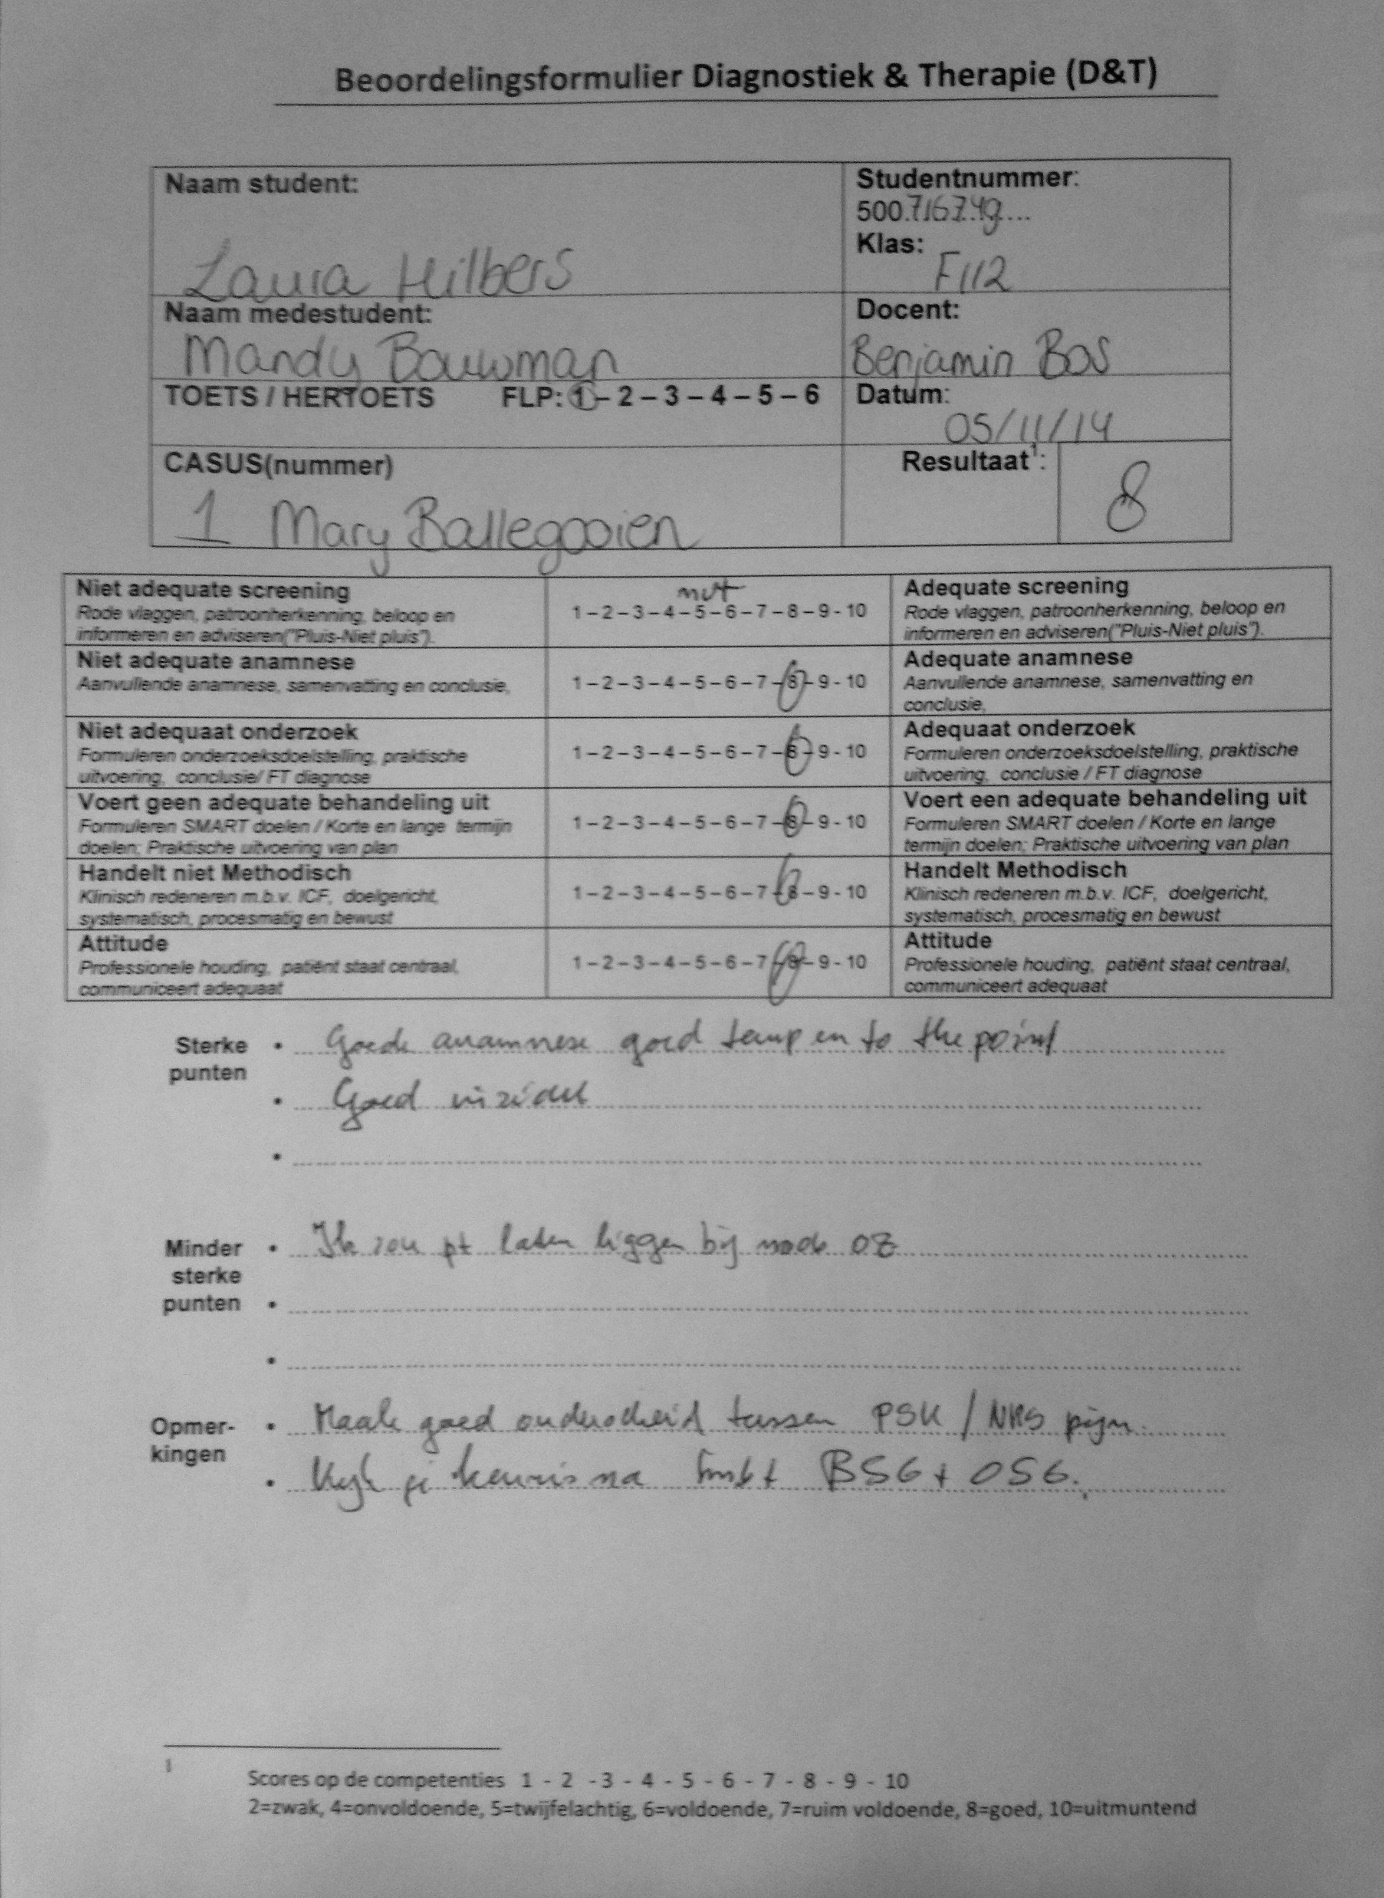 Beoordelingsformulier Diagnostiek & Therapie (D&T)
Naam student:
Laura Hilbers
Studentnummer:
500.716749....
Klas:
F112
Naam medestudent:
Mandy Bouwman
Docent:
Benjamin Bos
TOETS / HERTOETS FLP: 1 – 2 – 3 – 4 – 5 – 6
Datum:
05/11/14
CASUS(nummer)
1 Mary Ballegooien
Resultaat1:
8
Niet adequate screening
Rode vlaggen, patroonherkenning, beloop en
informeren en adviseren("Pluis-Niet pluis").
1 – 2 – 3 – 4 – 5 – 6 – 7 – 8 – 9 - 10
Adequate screening
Rode vlaggen, patroonherkenning, beloop en
informeren en adviseren("Pluis-Niet pluis").
Niet adequate anamnese
Aanvullende anamnese, samenvatting en conclusie,
1 – 2 – 3 – 4 – 5 – 6 – 7 – 8 – 9 - 10
Adequate anamnese
Aanvullende anamnese, samenvatting en
conclusie,
Niet adequaat onderzoek
Formuleren onderzoeksdoelstelling, praktische
uitvoering, conclusie/ FT diagnose
1 – 2 – 3 – 4 – 5 – 6 – 7 – 8 – 9 - 10
Adequaat onderzoek
Formuleren onderzoeksdoelstelling, praktische
uitvoering, conclusie / FT diagnose
Voert geen adequate behandeling uit
Formuleren SMART doelen / Korte en lange termijn
doelen; Praktische uitvoering van plan
1 – 2 – 3 – 4 – 5 – 6 – 7 – 8 – 9 - 10
Voert een adequate behandeling uit
Formuleren SMART doelen / Korte en lange
termijn doelen; Praktische uitvoering van plan
Handelt niet Methodisch
Klinisch redeneren m.b.v. ICF, doelgericht,
systematisch, procesmatig en bewust
1 – 2 – 3 – 4 – 5 – 6 – 7 – 8 – 9 - 10
Handelt Methodisch
Klinisch redeneren m.b.v. ICF, doelgericht,
systematisch, procesmatig en bewust
Attitude
Professionele houding, patiënt staat centraal,
communiceert adequaat
1 – 2 – 3 – 4 – 5 – 6 – 7 – 8 – 9 - 10
Attitude
Professionele houding, patiënt staat centraal,
communiceert adequaat
Sterke punten
• Goede anamnese goed temp en to the point
• Goed
•
Minder sterke punten
• Ik zou pt laten liggen bij OZ
•
•
Opmer-kingen
• Maak goed onderscheid tussen PSK / NRS pijn.
• Kijk je kennis na BSG + OSG.
1
Scores op de competenties 1 - 2 -3 - 4 - 5 - 6 - 7 - 8 - 9 - 10
2=zwak, 4=onvoldoende, 5=twijfelachtig, 6=voldoende, 7=ruim voldoende, 8=goed, 10=uitmuntend